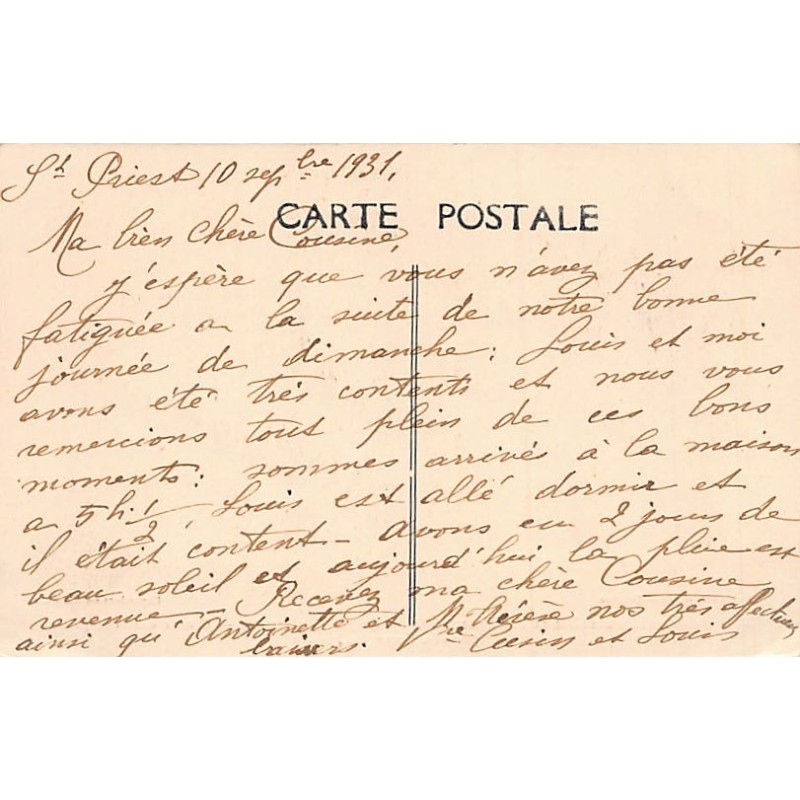 St Priest 10 sepbre 1931,
CARTE POSTALE
Ma bien chère Cousine,
j'espère que vous n'avez pas été
fatiguée a la suite de notre bonne
journée de dimanche; Louis et moi
avons été très contents et nous vous
remercions tout plein de ces bons
moments; sommes arrivés à la maison
a 5h. 1/2, Louis est allé dormir et
il était content - avons eu 2 jours de
beau soleil et aujourd'hui la pluie est
revenue - Recevez ma chère Cousine
ainsi qu'Antoinette et Mr nos très affectueux
baisers. et Louis